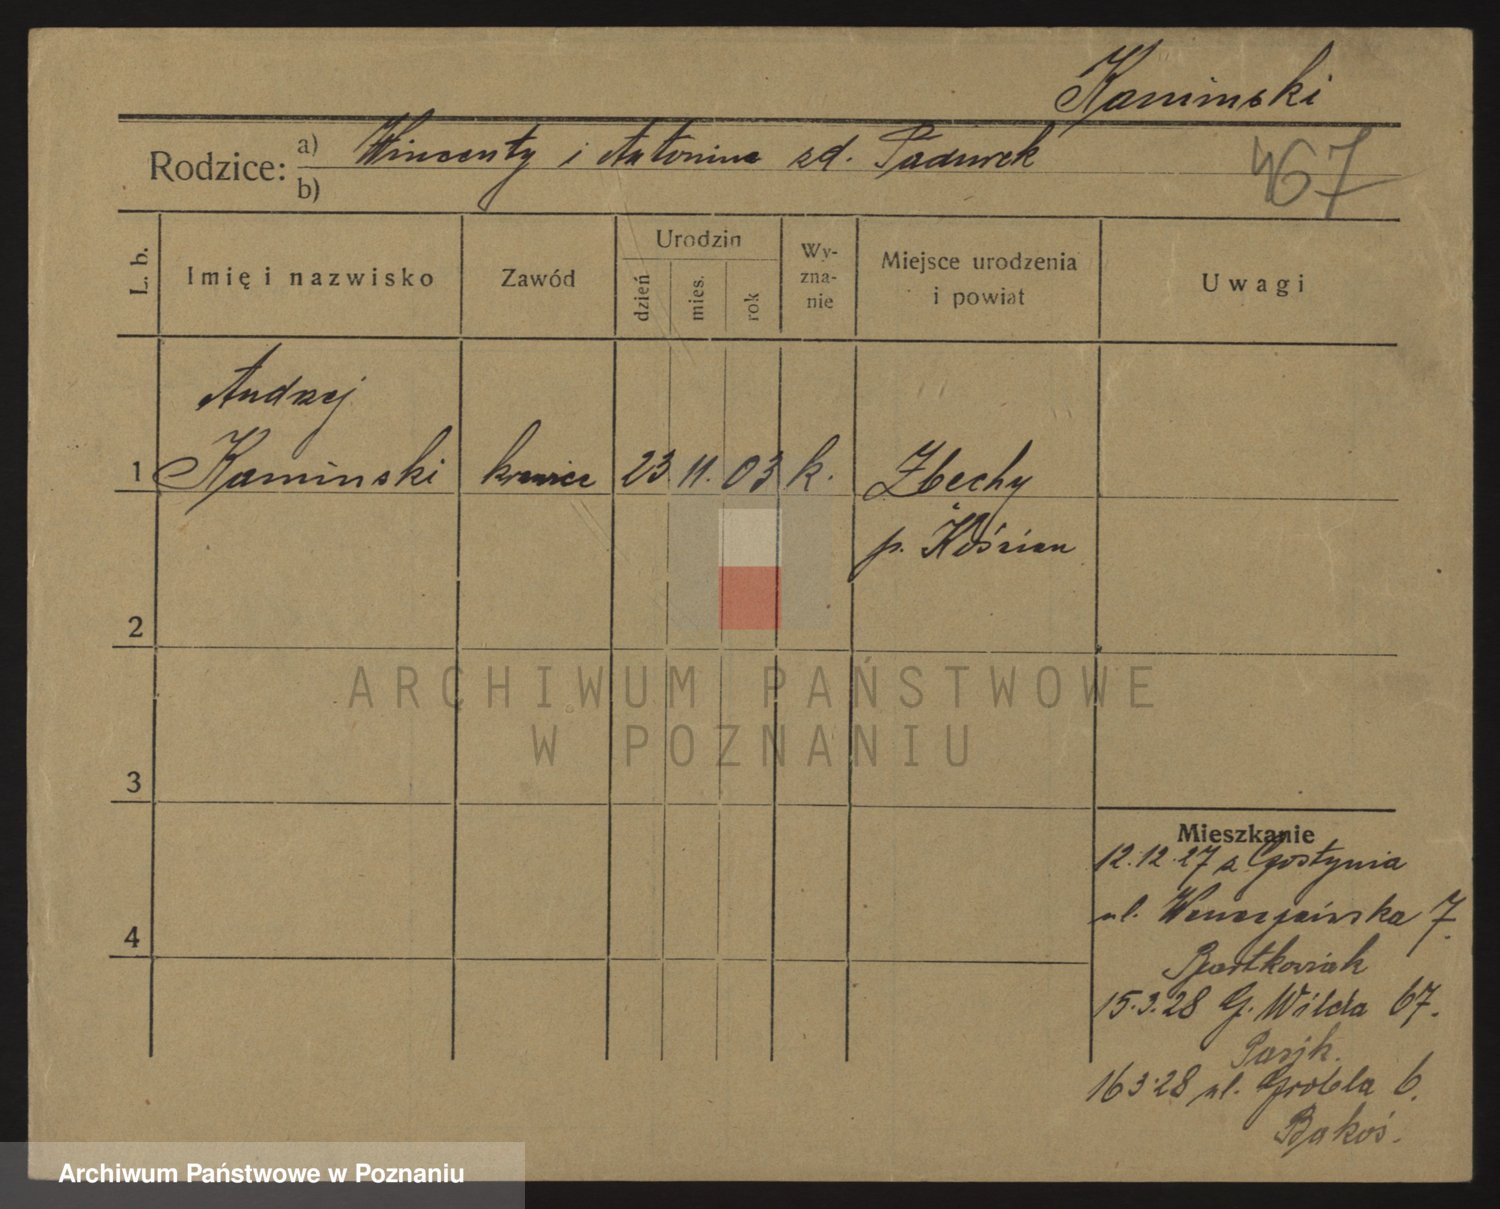 Kaminski
Rodzice: a) Wincenty i Antonina zd. Padurek
b)
467
L. b.
Imię i nazwisko
Zawód
Urodzin
dzień
mies.
rok
Wy-
zna-
nie
Miejsce urodzenia
i powiat
Uwagi
Andrzej
1 Kaminski krawiec 23 11. 03 k. Zbechy
p. Kościan
2
3
4
ARCHIWUM PAŃSTWOWE
W POZNANIU
Mieszkanie
12.12.27 z Gostynia
ul. 7.
Bartkowiak
15.3.28 G. Wilda 67.
16 3.28 ul. Grobla 6.
Bakoś.
Archiwum Państwowe w Poznaniu